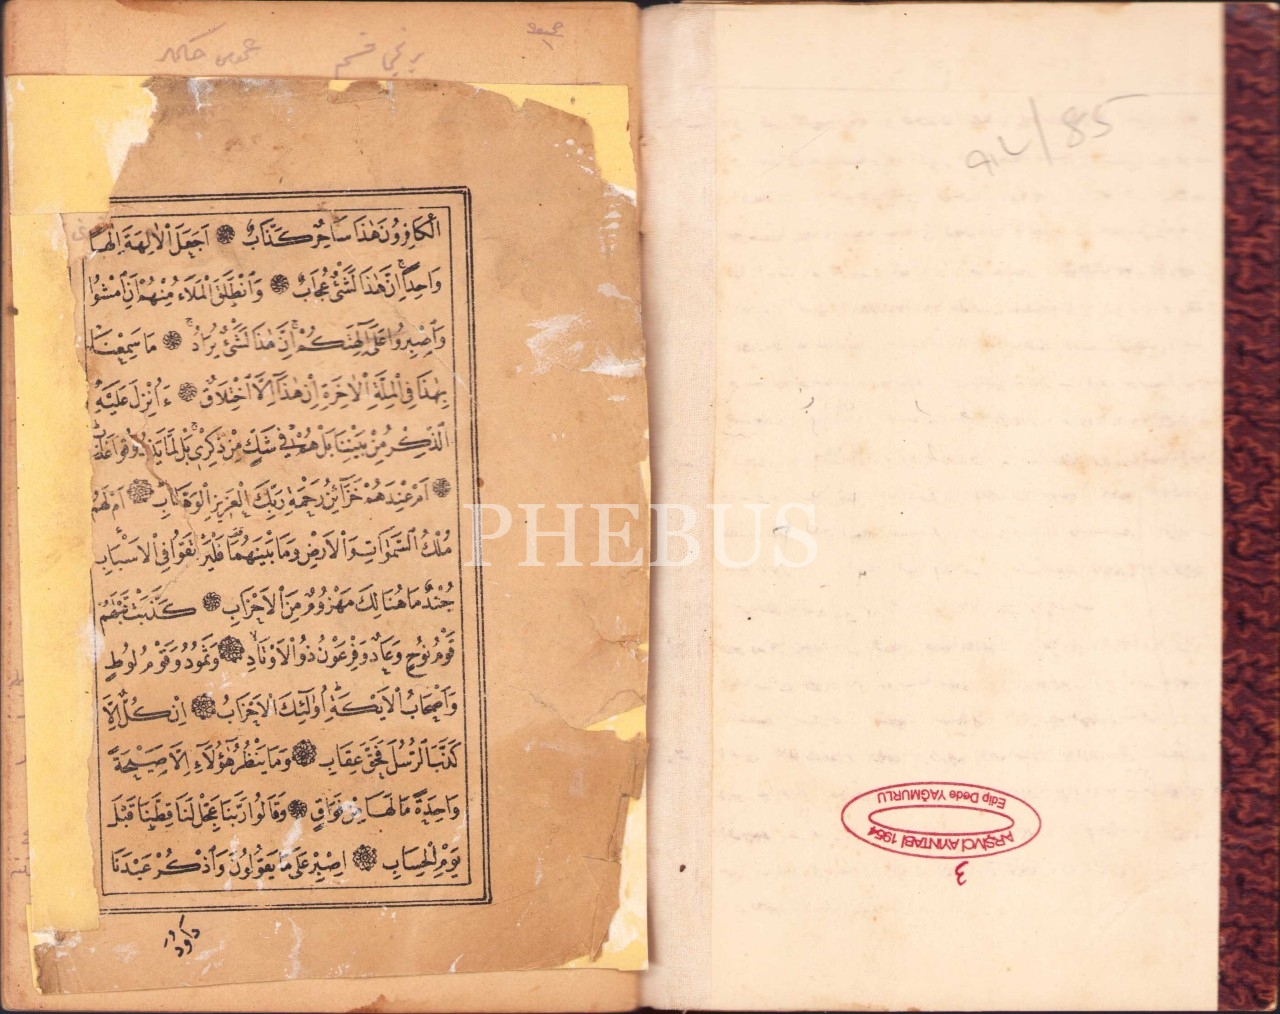 برنجى قسم
الْكَافِرُونَ هٰذَا سَاحِرٌ كَذَّابٌ ۞ اَجَعَلَ الْاٰلِهَةَ اِلٰهاً
وَاحِداً اِنَّ هٰذَا لَشَىْءٌ عُجَابٌ ۞ وَانْطَلَقَ الْمَلَاُ مِنْهُمْ اَنِ امْشُوا
وَاصْبِرُوا عَلٰٓى اٰلِهَتِكُمْ اِنَّ هٰذَا لَشَىْءٌ يُرَادُ ۞ مَا سَمِعْنَا
بِهٰذَا فِى الْمِلَّةِ الْاٰخِرَةِ اِنْ هٰذَٓا اِلَّا اخْتِلَاقٌ ۞ ءَاُنْزِلَ عَلَيْهِ
الذِّكْرُ مِنْ بَيْنِنَا بَلْ هُمْ فِى شَكٍّ مِنْ ذِكْرِى بَلْ لَمَّا يَذُوقُوا عَذَابِ
۞ اَمْ عِنْدَهُمْ خَزَٓائِنُ رَحْمَةِ رَبِّكَ الْعَزِيزِ الْوَهَّابِ ۞ اَمْ لَهُمْ
مُلْكُ السَّمٰوَاتِ وَالْاَرْضِ وَمَا بَيْنَهُمَا فَلْيَرْتَقُوا فِى الْاَسْبَابِ
جُنْدٌ مَا هُنَالِكَ مَهْزُومٌ مِنَ الْاَحْزَابِ ۞ كَذَّبَتْ قَبْلَهُمْ
قَوْمُ نُوحٍ وَعَادٌ وَفِرْعَوْنُ ذُو الْاَوْتَادِ ۞ وَثَمُودُ وَقَوْمُ لُوطٍ
وَاَصْحَابُ الْاَيْكَةِ اُولٰٓئِكَ الْاَحْزَابُ ۞ اِنْ كُلٌّ اِلَّا
كَذَّبَ الرُّسُلَ فَحَقَّ عِقَابِ ۞ وَمَا يَنْظُرُ هٰٓؤُلَٓاءِ اِلَّا صَيْحَةً
وَاحِدَةً مَا لَهَا مِنْ فَوَاقٍ ۞ وَقَالُوا رَبَّنَا عَجِّلْ لَنَا قِطَّنَا قَبْلَ
يَوْمِ الْحِسَابِ ۞ اِصْبِرْ عَلٰى مَا يَقُولُونَ وَاذْكُرْ عَبْدَنَا
دَاوُدَ
PHEBUS
/85
ARŞİVCİ AYINTABİ 1954
Edip Dede YAĞMURLU
3